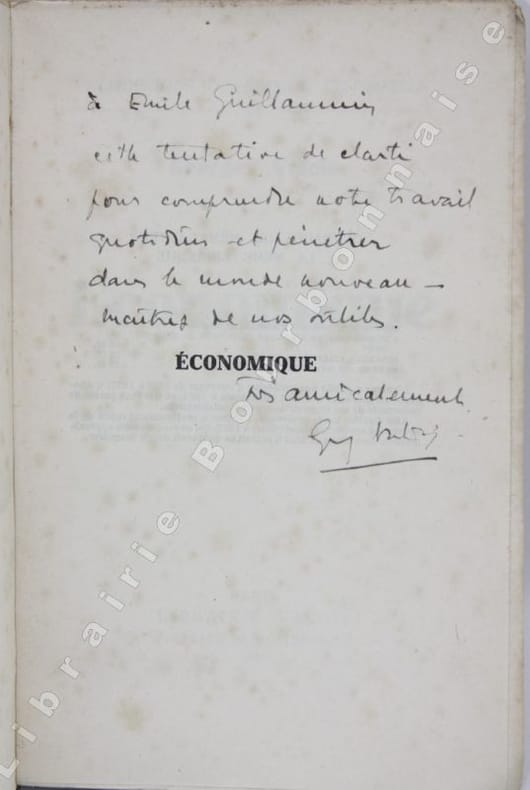 à Emile Guillaumin
cette tentative de clarté
pour comprendre notre travail
quotidien et pénétrer
dans le monde nouveau —
maîtres de nos outils.
ÉCONOMIQUE
très amicalement
Guy
Librairie Bourbonnaise